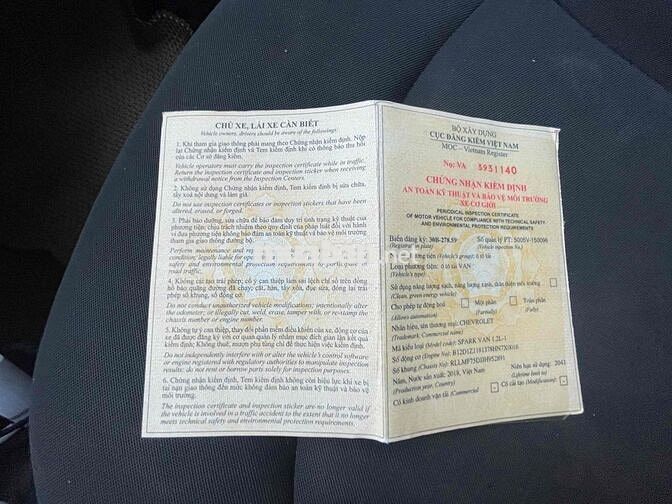 CHỦ XE, LÁI XE CẦN BIẾT
Vehicle owners, drivers should be aware of the followings
1. Khi tham gia giao thông phải mang theo Chứng nhận kiểm định. Nộp
lại Chứng nhận kiểm định và Tem kiểm định khi có thông báo thu hồi
của các Cơ sở đăng kiểm.
Vehicle operators must carry the inspection certificate while in traffic.
Return the inspection certificate and inspection sticker when receiving
a withdrawal notice from the Inspection Centers.
2. Không sử dụng Chứng nhận kiểm định, Tem kiểm định bị sửa chữa,
tẩy xoá nội dung và làm giả.
Do not use inspection certificates or inspection stickers that have been
altered, erased, or forged.
3. Phải bảo dưỡng, sửa chữa để bảo đảm duy trì tình trạng kỹ thuật của
phương tiện; chịu trách nhiệm theo quy định của pháp luật đối với hành
vi đưa phương tiện không bảo đảm an toàn kỹ thuật và bảo vệ môi trường
tham gia giao thông đường bộ.
Perform maintenance and
condition; legally liable for
safety and environmental protection requirements to participate in
road traffic.
4. Không cải tạo trái phép; cố ý can thiệp làm sai lệch chỉ số trên đồng
hồ báo quãng đường đã chạy; cắt, hàn, tẩy xóa, đục sửa, đóng lại trái
phép số khung, số động cơ.
Do not conduct unauthorized vehicle modifications; intentionally alter the
odometer; or illegally cut, weld, erase, tamper with, or re-stamp the
chassis number or engine number.
5. Không tự ý can thiệp, thay đổi phần mềm điều khiển của xe, động cơ của xe
đã được đăng ký với cơ quan quản lý nhằm mục đích gian lận kết quả
kiểm định; Không thuê, mượn phụ tùng chỉ để thực hiện việc kiểm định.
Do not independently interfere with or alter the vehicle's control software
or engine registered with regulatory authorities to manipulate inspection
results; do not rent or borrow parts solely for inspection purposes.
6. Chứng nhận kiểm định, Tem kiểm định không còn hiệu lực khi xe bị
tai nạn giao thông đến mức không đảm bảo an toàn kỹ thuật và bảo vệ
môi trường.
The inspection certificate and inspection sticker are no longer valid if
the vehicle is involved in a traffic accident to the extent that it no longer
meets technical safety and environmental protection requirements.
BỘ XÂY DỰNG
CỤC ĐĂNG KIỂM VIỆT NAM
MOC - Vietnam Register
No: VA 3931140
CHỨNG NHẬN KIỂM ĐỊNH
AN TOÀN KỸ THUẬT VÀ BẢO VỆ MÔI TRƯỜNG
XE CƠ GIỚI
PERIODICAL INSPECTION CERTIFICATE
OF MOTOR VEHICLE FOR COMPLIANCE WITH TECHNICAL SAFETY
AND ENVIRONMENTAL PROTECTION REQUIREMENTS
Biển đăng ký: 30H-278.59 Số quản lý PT: 5005V-150096
(Registration plate) (Vehicle inspection No.)
ô tô tải
Loại phương tiện: ô tô tải VAN
(Vehicle's type)
Sử dụng năng lượng sạch, năng lượng xanh, thân thiện môi trường
(Clean, green energy vehicle)
Cho phép tự động hoá Một phần Toàn phần
(Allows automation) (Partially) (Fully)
Nhãn hiệu, tên thương mại: CHEVROLET
Mã kiểu loại: SPARK VAN 1.2L-1
(Model code)
Số động cơ (Engine No):
Số khung (Chassis No):
Năm, Nước sản xuất: 2018, Việt Nam Niên hạn sử dụng: 2043
(Production year, Country) (Lifetime limit to)
Có kinh doanh vận tải (Commercial Có cải tạo (Modification)